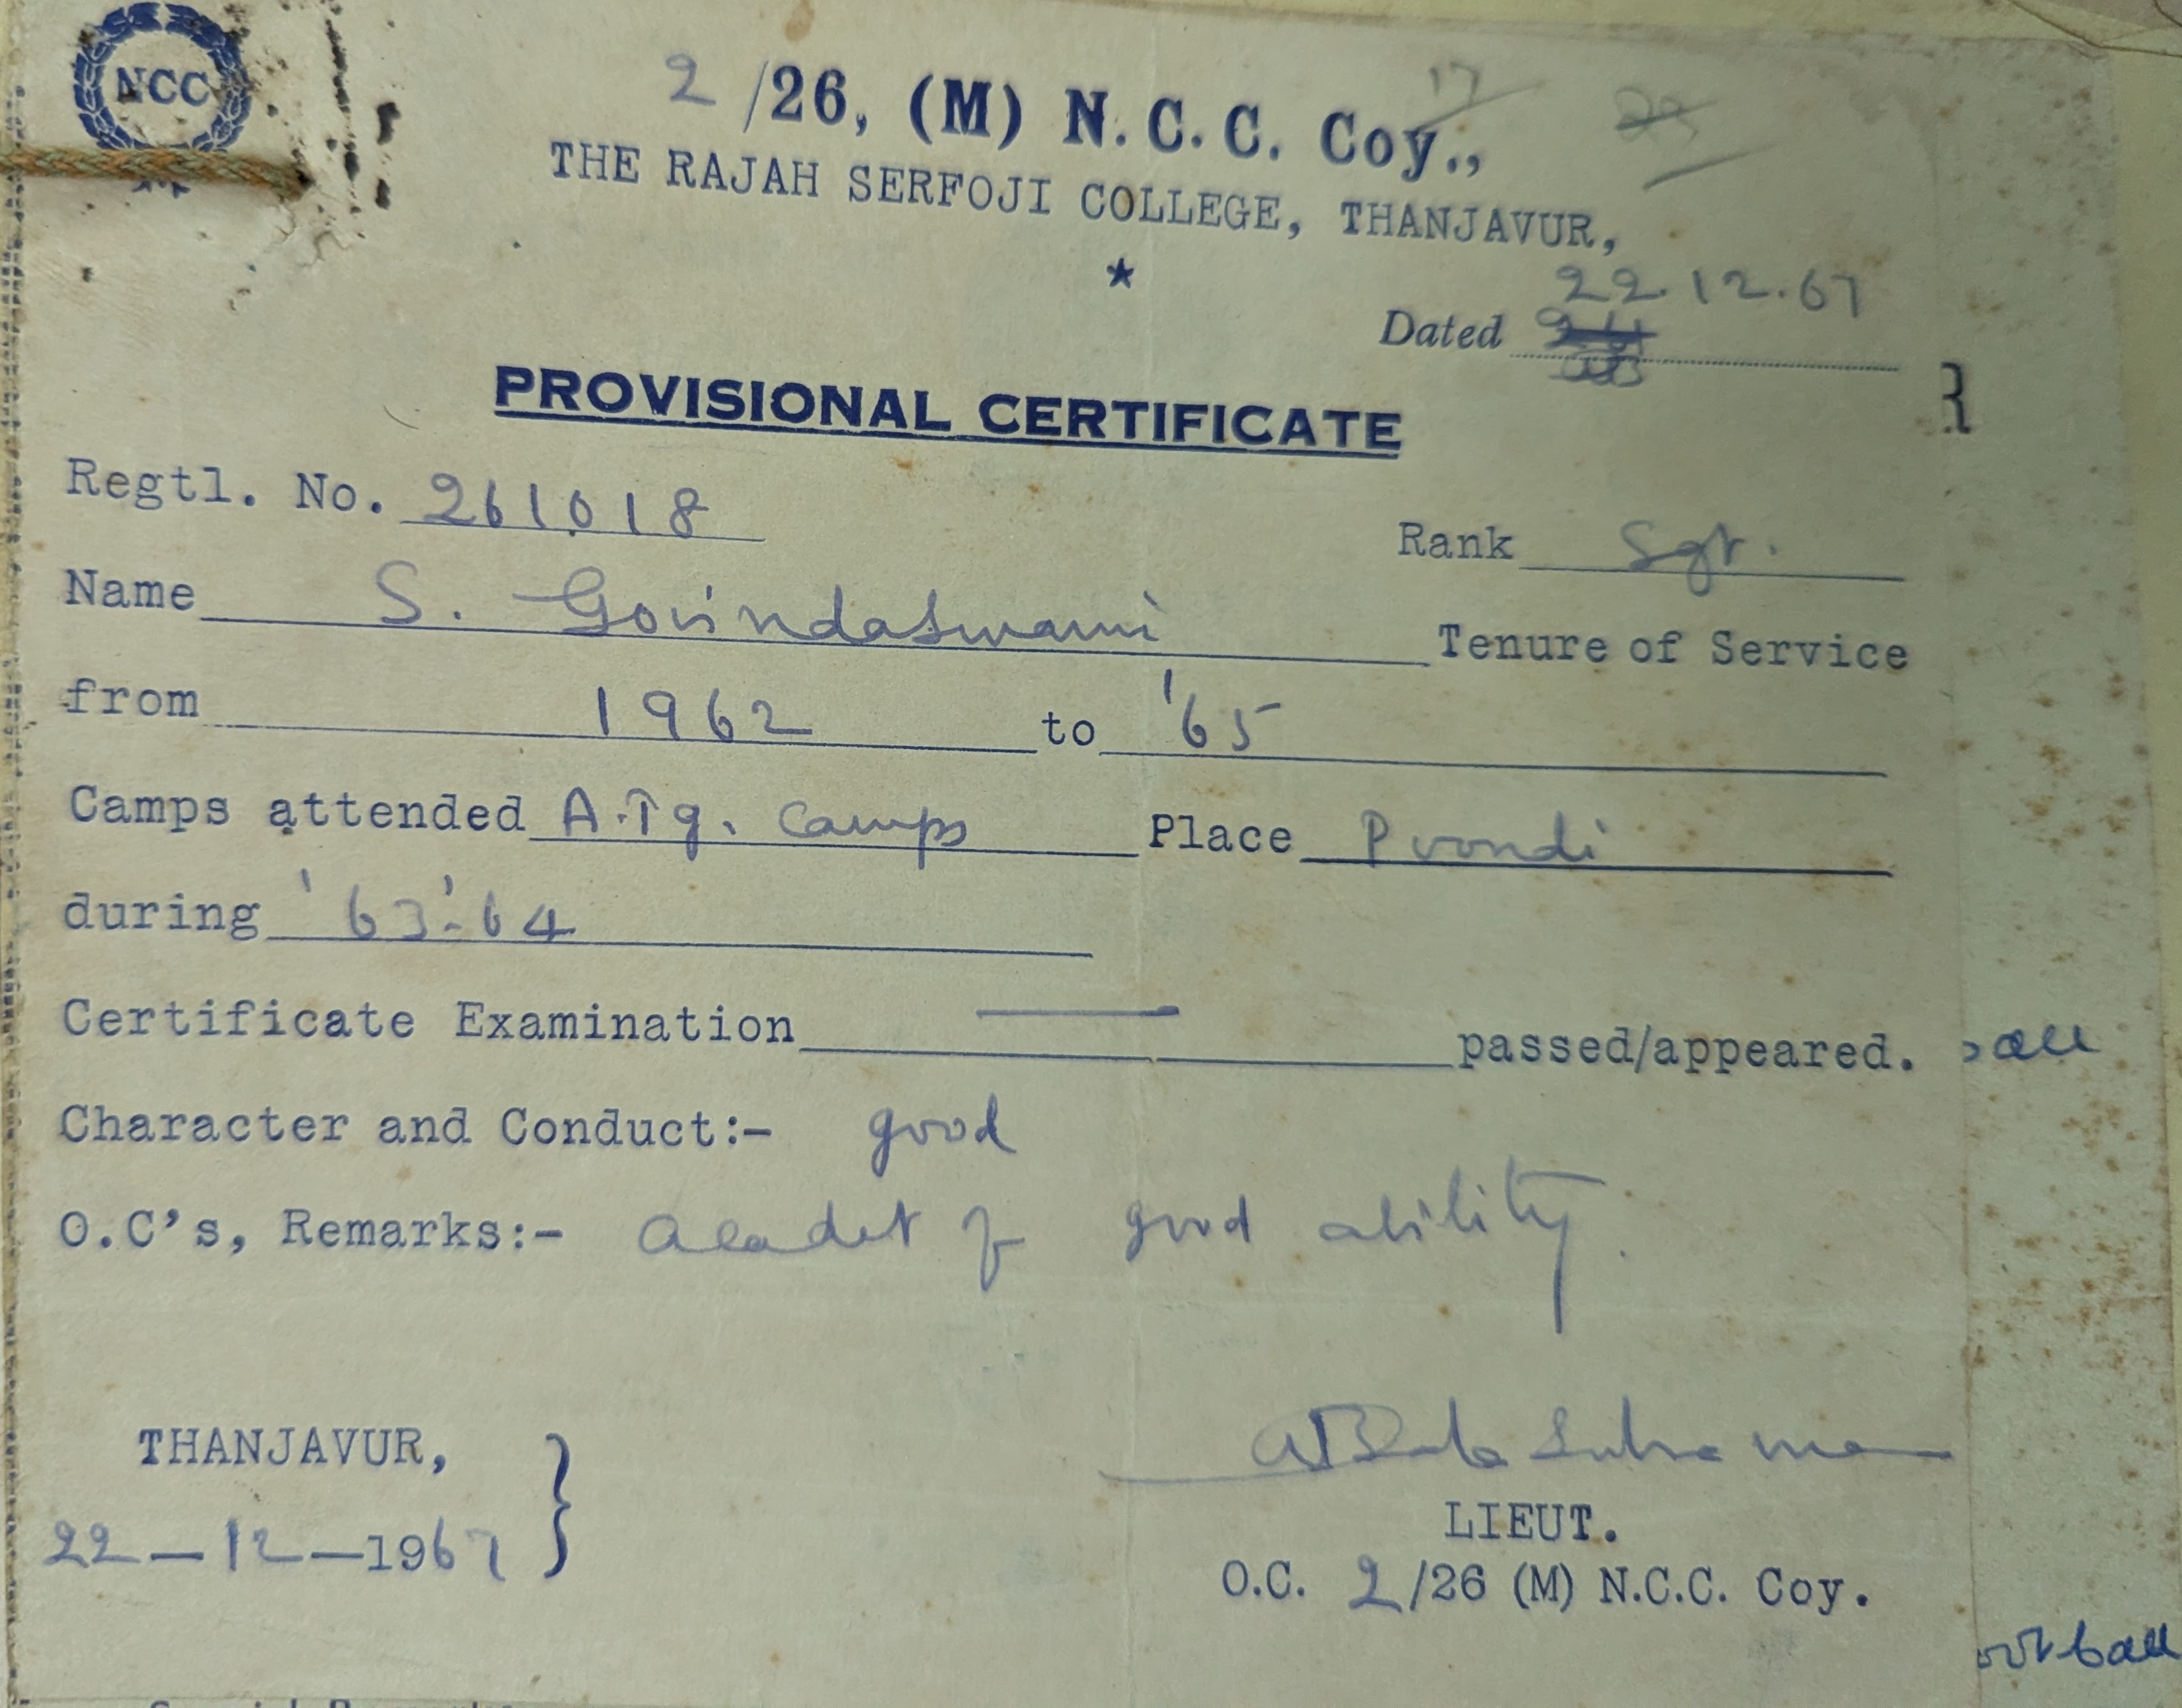 NCC
17
2/26, (M) N.C.C. Coy.,
THE RAJAH SERFOJI COLLEGE, THANJAVUR,
22.12.67
Dated
PROVISIONAL CERTIFICATE
Regtl. No. 261018
Rank Sgt.
Name S. Govindaswami Tenure of Service
from 1962 to '65
Camps attended A.Tg. Camps Place Poondi
during '63-'64
Certificate Examination — passed/appeared.
Character and Conduct:- good
O.C's, Remarks:- A cadet of good ability.
THANJAVUR,
22-12-1967
LIEUT.
O.C. 2/26 (M) N.C.C. Coy.